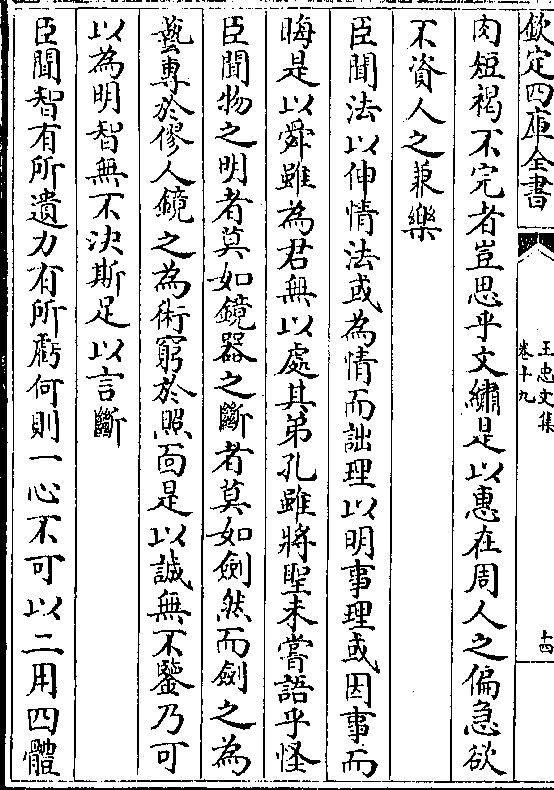 欽定四庫全書
王忠文集
卷十九
十四
肉短褐不完者豈思乎文繡是以惠在周人之偏急欲
不資人之兼樂
臣聞法以伸情法或為情而詘理以明事理或因事而
晦是以舜雖為君無以處其弟孔雖將聖未嘗語乎怪
臣聞物之明者莫如鏡器之斷者莫如劍然而劍之為
藝專於僇人鏡之為術窮於照面是以誠無不鑒乃可
以為明智無不決斯足以言斷
臣聞智有所遺力有所虧何則一心不可以二用四體